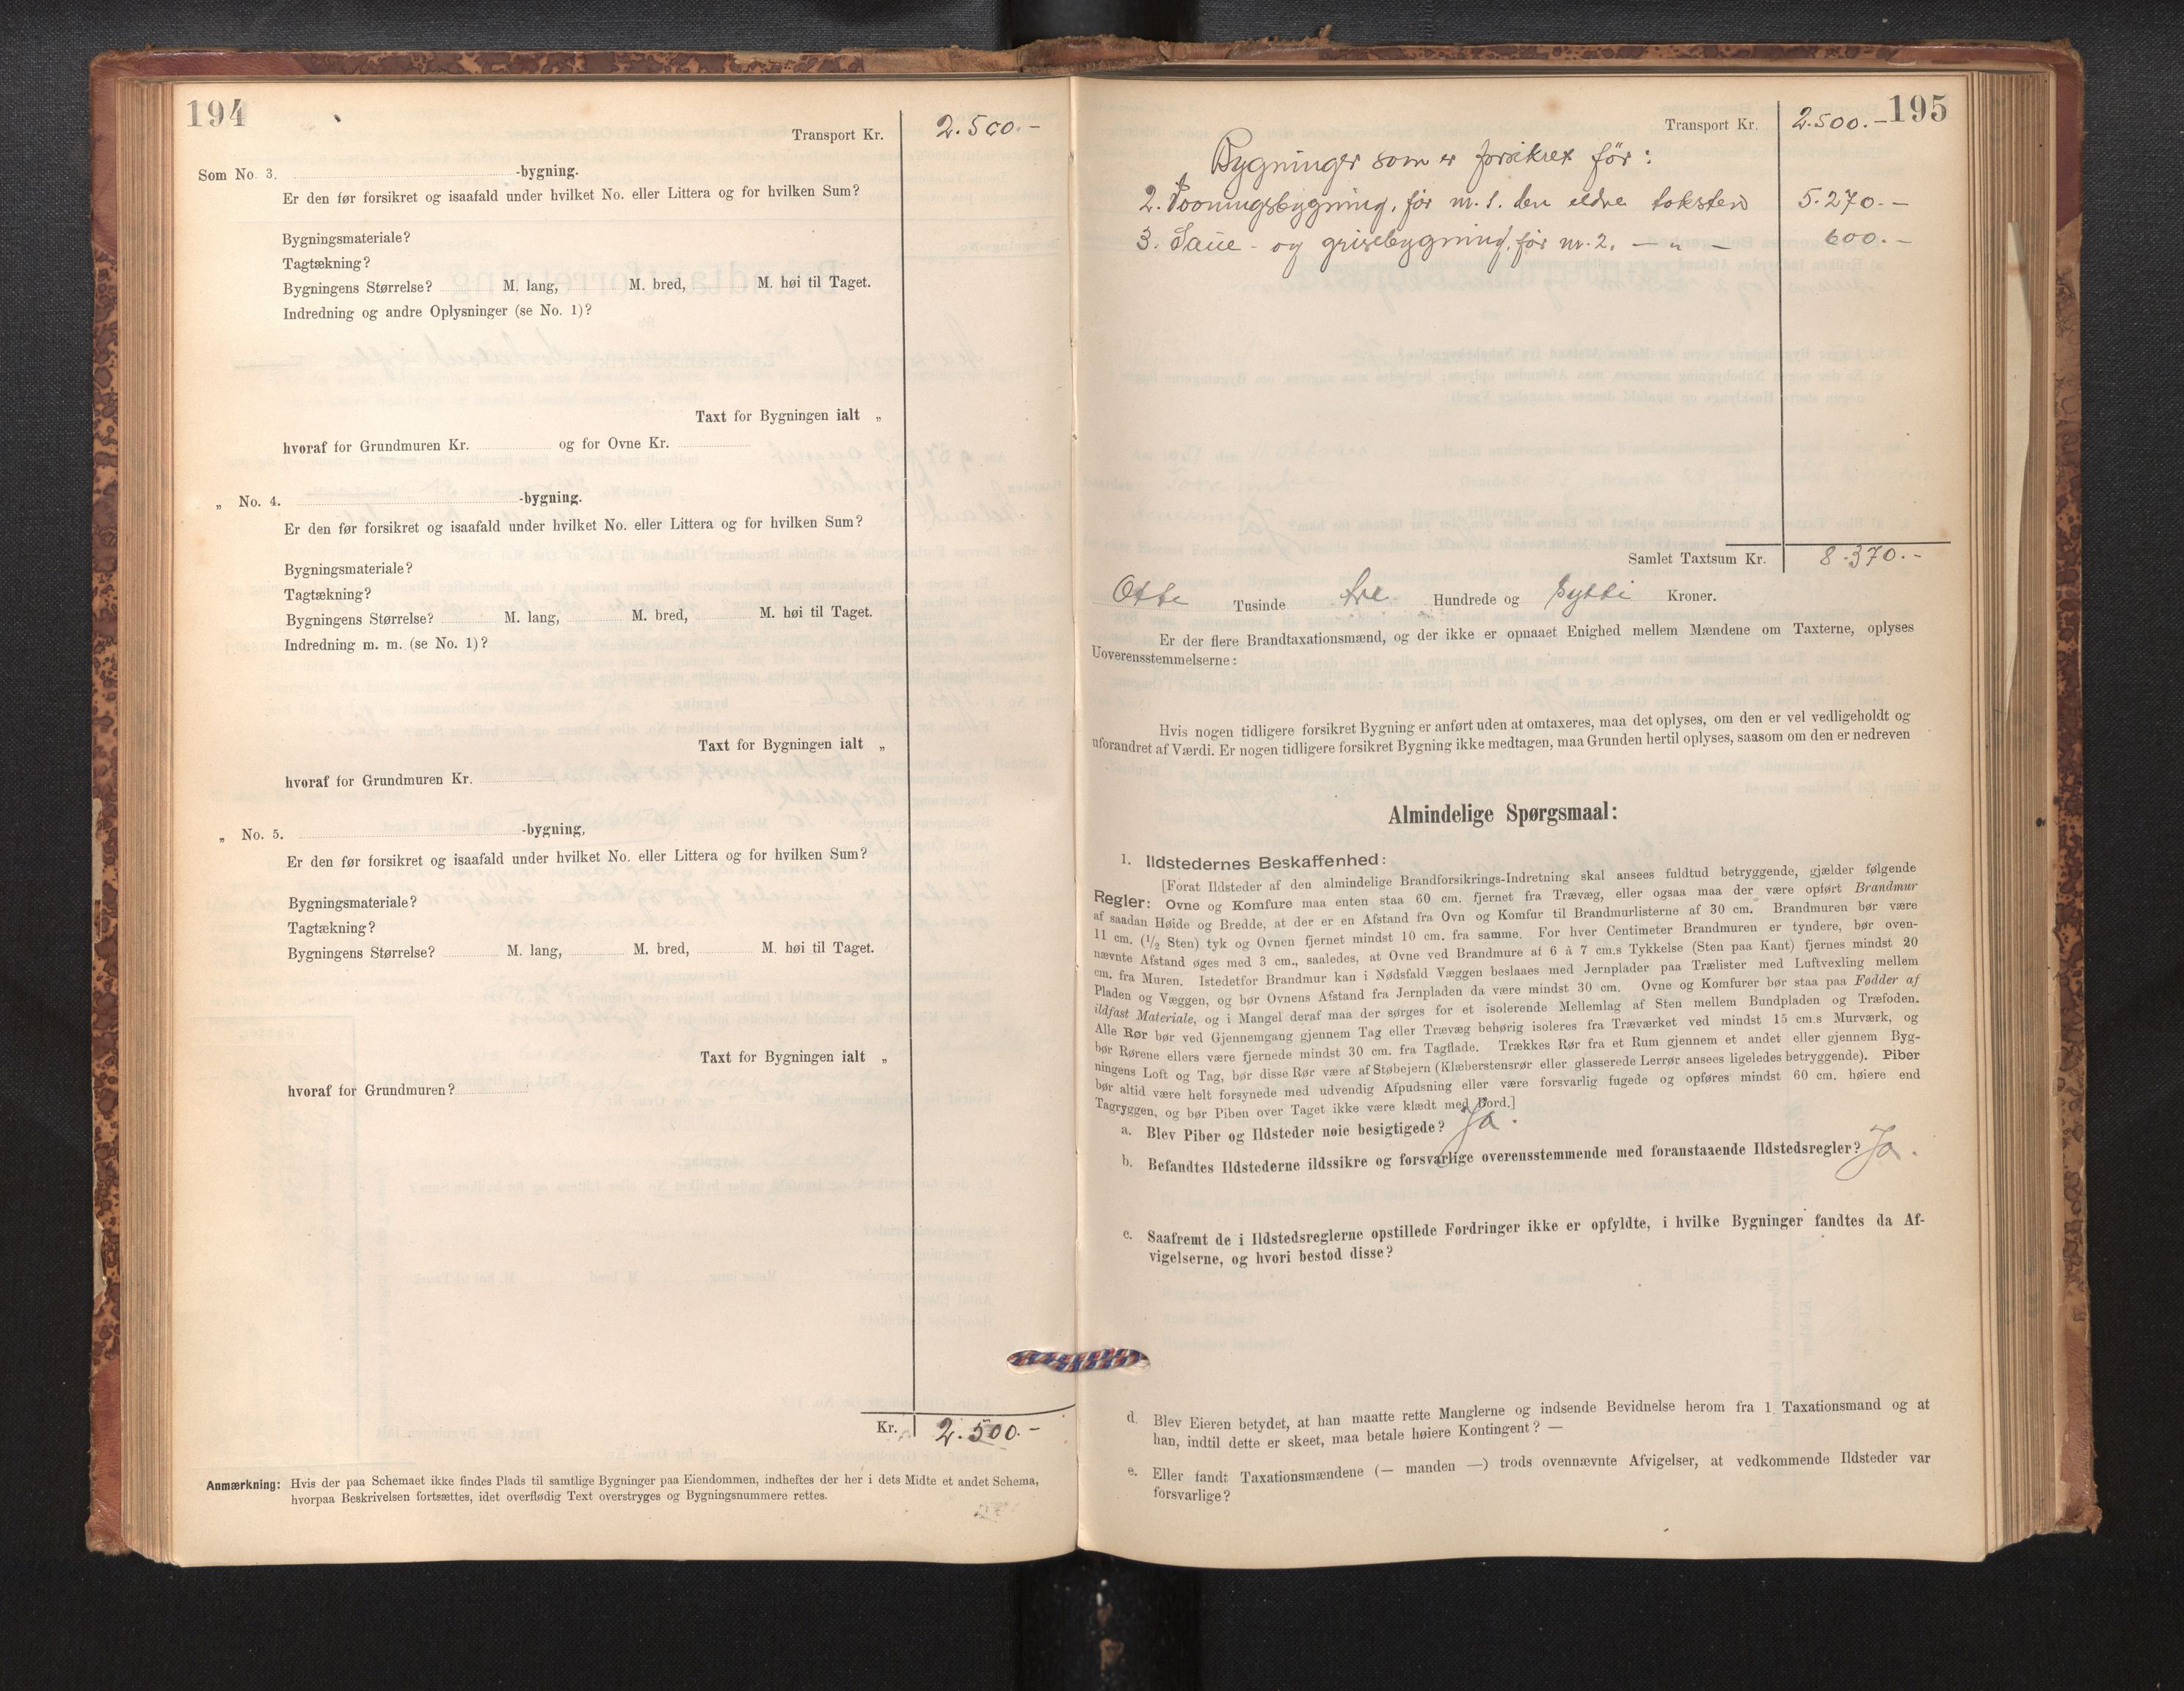 194
Transport Kr. 2.500.-
Som No. 3. -bygning.
Er den før forsikret og isaafald under hvilket No. eller Littera og for hvilken Sum?
Bygningsmateriale?
Tagtækning?
Bygningens Størrelse? M. lang, M. bred, M. høi til Taget.
Indredning og andre Oplysninger (se No. 1)?
Taxt for Bygningen ialt „
hvoraf for Grundmuren Kr. og for Ovne Kr.
„ No. 4. -bygning.
Er den før forsikret og isaafald under hvilket No. eller Littera og for hvilken Sum?
Bygningsmateriale?
Tagtækning?
Bygningens Størrelse? M. lang, M. bred, M. høi til Taget.
Indredning m. m. (se No. 1)?
Taxt for Bygningen ialt „
hvoraf for Grundmuren Kr.
„ No. 5. -bygning,
Er den før forsikret og isaafald under hvilket No. eller Littera og for hvilken Sum?
Bygningsmateriale?
Tagtækning?
Bygningens Størrelse? M. lang, M. bred, M. høi til Taget.
Taxt for Bygningen ialt „
hvoraf for Grundmuren?
Kr. 2.500.-
Anmærkning: Hvis der paa Schemaet ikke findes Plads til samtlige Bygninger paa Eiendommen, indheftes der her i dets Midte et andet Schema,
hvorpaa Beskrivelsen fortsættes, idet overflødig Text overstryges og Bygningsnummere rettes.
195
Transport Kr. 2.500.-
Bygninger som er forsikret før:
2. Vooningsbygning, før nr. 1. den eldre taksten 5.270.-
3. Saue- og grisebygning, før nr. 2. — „ — 600.-
Samlet Taxtsum Kr. 8.370.-
Otte Tusinde tre Hundrede og sytti Kroner.
Er der flere Brandtaxationsmænd, og der ikke er opnaaet Enighed mellem Mændene om Taxterne, oplyses
Uoverensstemmelserne:
Hvis nogen tidligere forsikret Bygning er anført uden at omtaxeres, maa det oplyses, om den er vel vedligeholdt og
uforandret af Værdi. Er nogen tidligere forsikret Bygning ikke medtagen, maa Grunden hertil oplyses, saasom om den er nedreven
Almindelige Spørgsmaal:
1. Ildstedernes Beskaffenhed:
[Forat Ildsteder af den almindelige Brandforsikrings-Indretning skal ansees fuldtud betryggende, gjælder følgende
Regler: Ovne og Komfure maa enten staa 60 cm. fjernet fra Trævæg, eller ogsaa maa der være opført Brandmur
af saadan Høide og Bredde, at der er en Afstand fra Ovn og Komfur til Brandmurlisterne af 30 cm. Brandmuren bør være
11 cm. (1/2 Sten) tyk og Ovnen fjernet mindst 10 cm. fra samme. For hver Centimeter Brandmuren er tyndere, bør oven-
nævnte Afstand øges med 3 cm., saaledes, at Ovne ved Brandmure af 6 à 7 cm.s Tykkelse (Sten paa Kant) fjernes mindst 20
cm. fra Muren. Istedetfor Brandmur kan i Nødsfald Væggen beslaaes med Jernplader paa Trælister med Luftvexling mellem
Pladen og Væggen, og bør Ovnens Afstand fra Jernpladen da være mindst 30 cm. Ovne og Komfurer bør staa paa Fødder af
ildfast Materiale, og i Mangel deraf maa der sørges for et isolerende Mellemlag af Sten mellem Bundpladen og Træfoden.
Alle Rør bør ved Gjennemgang gjennem Tag eller Trævæg behørig isoleres fra Træværket ved mindst 15 cm.s Murværk, og
bør Rørene ellers være fjernede mindst 30 cm. fra Tagflade. Trækkes Rør fra et Rum gjennem et andet eller gjennem Byg-
ningens Loft og Tag, bør disse Rør være af Støbejern (Klæberstensrør eller glasserede Lerrør ansees ligeledes betryggende). Piber
bør altid være helt forsynede med udvendig Afpudsning eller være forsvarlig fugede og opføres mindst 60 cm. høiere end
Tagryggen, og bør Piben over Taget ikke være klædt med Bord.]
a. Blev Piber og Ildsteder nøie besigtigede? Ja.
b. Befandtes Ildstederne ildssikre og forsvarlige overensstemmende med foranstaaende Ildstedsregler? Ja.
c. Saafremt de i Ildstedsreglerne opstillede Fordringer ikke er opfyldte, i hvilke Bygninger fandtes da Af-
vigelserne, og hvori bestod disse?
d. Blev Eieren betydet, at han maatte rette Manglerne og indsende Bevidnelse herom fra 1 Taxationsmand og at
han, indtil dette er skeet, maa betale høiere Kontingent? —
e. Eller fandt Taxationsmændene (— manden —) trods ovennævnte Afvigelser, at vedkommende Ildsteder var
forsvarlige?